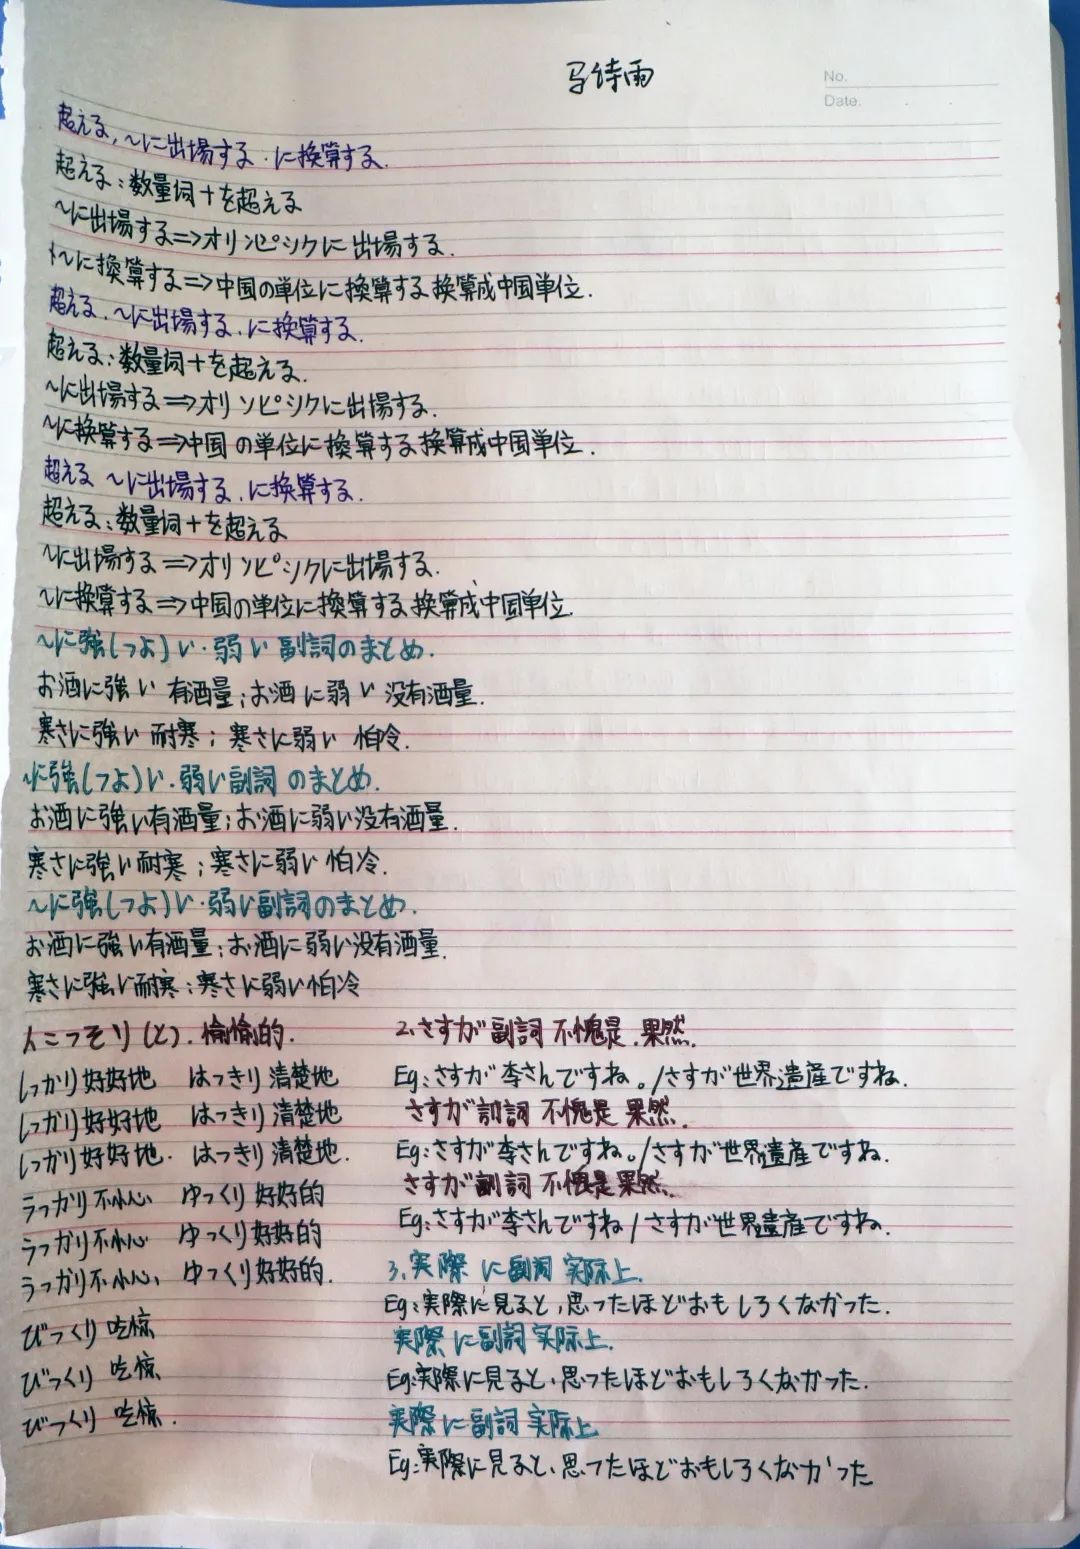 马诗雨
No.
Date.
超える,~に出場する.に換算する.
超える:数量词+を超える
~に出場する=>オリンピックに出場する.
~に換算する=>中国の単位に換算する 换算成中国单位.
超える.~に出場する.に換算する.
超える:数量词+を超える.
~に出場する=>オリンピックに出場する.
~に換算する=>中国の単位に換算する 换算成中国单位.
超える ~に出場する.に換算する.
超える:数量词+を超える
~に出場する=>オリンピックに出場する.
~に換算する=>中国の単位に換算する 换算成中国单位.
~に強(つよ)い·弱い副詞のまとめ.
お酒に強い 有酒量;お酒に弱い 没有酒量.
寒さに強い 耐寒;寒さに弱い 怕冷.
~に強(つよ)い.弱い副詞のまとめ.
お酒に強い有酒量;お酒に弱い没有酒量.
寒さに強い耐寒;寒さに弱い怕冷.
~に強(つよ)い·弱い副詞のまとめ.
お酒に強い有酒量;お酒に弱い没有酒量.
寒さに強い耐寒;寒さに弱い怕冷
1.こっそり(と).偷偷的.
しっかり好好地 はっきり清楚地
しっかり好好地 はっきり清楚地
しっかり好好地. はっきり清楚地.
うっかり不小心 ゆっくり好好的
うっかり不小心 ゆっくり好好的
うっかり不小心, ゆっくり好好的.
びっくり 吃惊
びっくり 吃惊
びっくり 吃惊.
2.さすが副詞 不愧是.果然.
Eg:さすが李さんですね。/さすが世界遺産ですね.
さすが副詞 不愧是 果然.
Eg:さすが李さんですね。/さすが世界遺産ですね.
さすが副詞 不愧是果然.
Eg:さすが李さんですね/さすが世界遺産ですね.
3.実際に副詞 实际上.
Eg:実際に見ると,思ったほどおもしろくなかった.
実際に副詞 实际上.
Eg:実際に見ると,思ったほどおもしろくなかった.
実際に副詞 实际上
Eg:実際に見ると,思ったほどおもしろくなかった